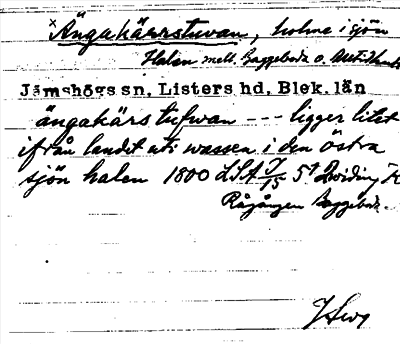 × Ängakärrstuvan, holme i sjön
Halen mell. Baggeboda o.
Jämshögs sn, Listers hd, Blek. län
ängakärs tufwan --- ligger litet
ifrån landet uti wassen i den östra
sjön halen 1800 LSA J/15 5
Rågången Baggeboda